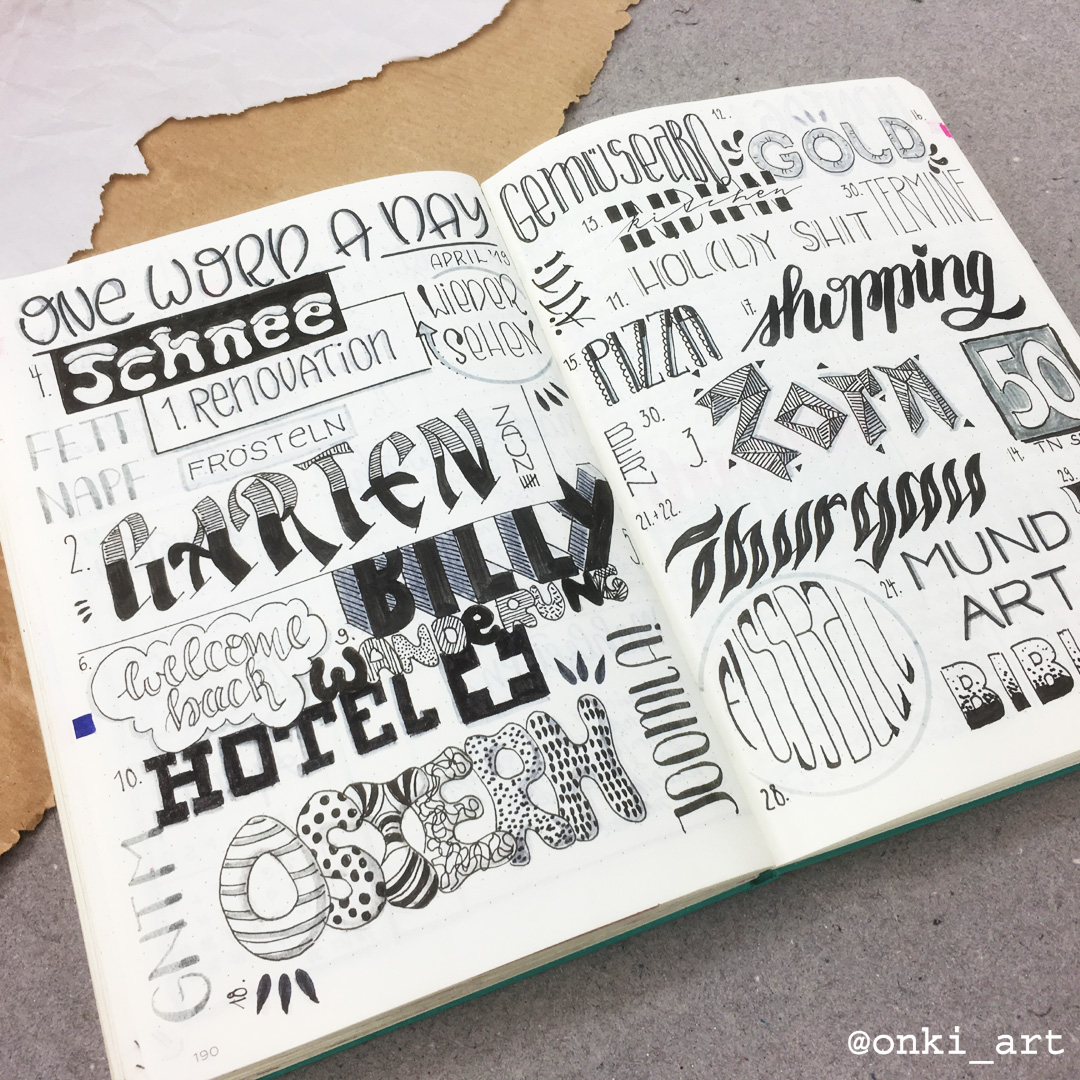 ONE WORD A DAY
APRIL '18
4. Schnee
WIEDER
SEHEN
1. RENOVATION
FETT
NAPF
FRÖSTELN
2. GARTEN
5. BILLY
6. welcome
back
9. WANDERUNG
10. HOTEL
JODMILCH
OSTERN
GNTM
18.
190
GEMÜSEABO
12.
GOLD
16.
13. Kirchen
30. TERMINE
11. HOL(L)Y SHIT
15. PIZZA
17. shopping
50
14. TN S
30.
BIRZ
3. ZORN
21.+22. Thurgau
29.
24. MUND
ART
FUSSBALL
28.
BIBI
@onki_art